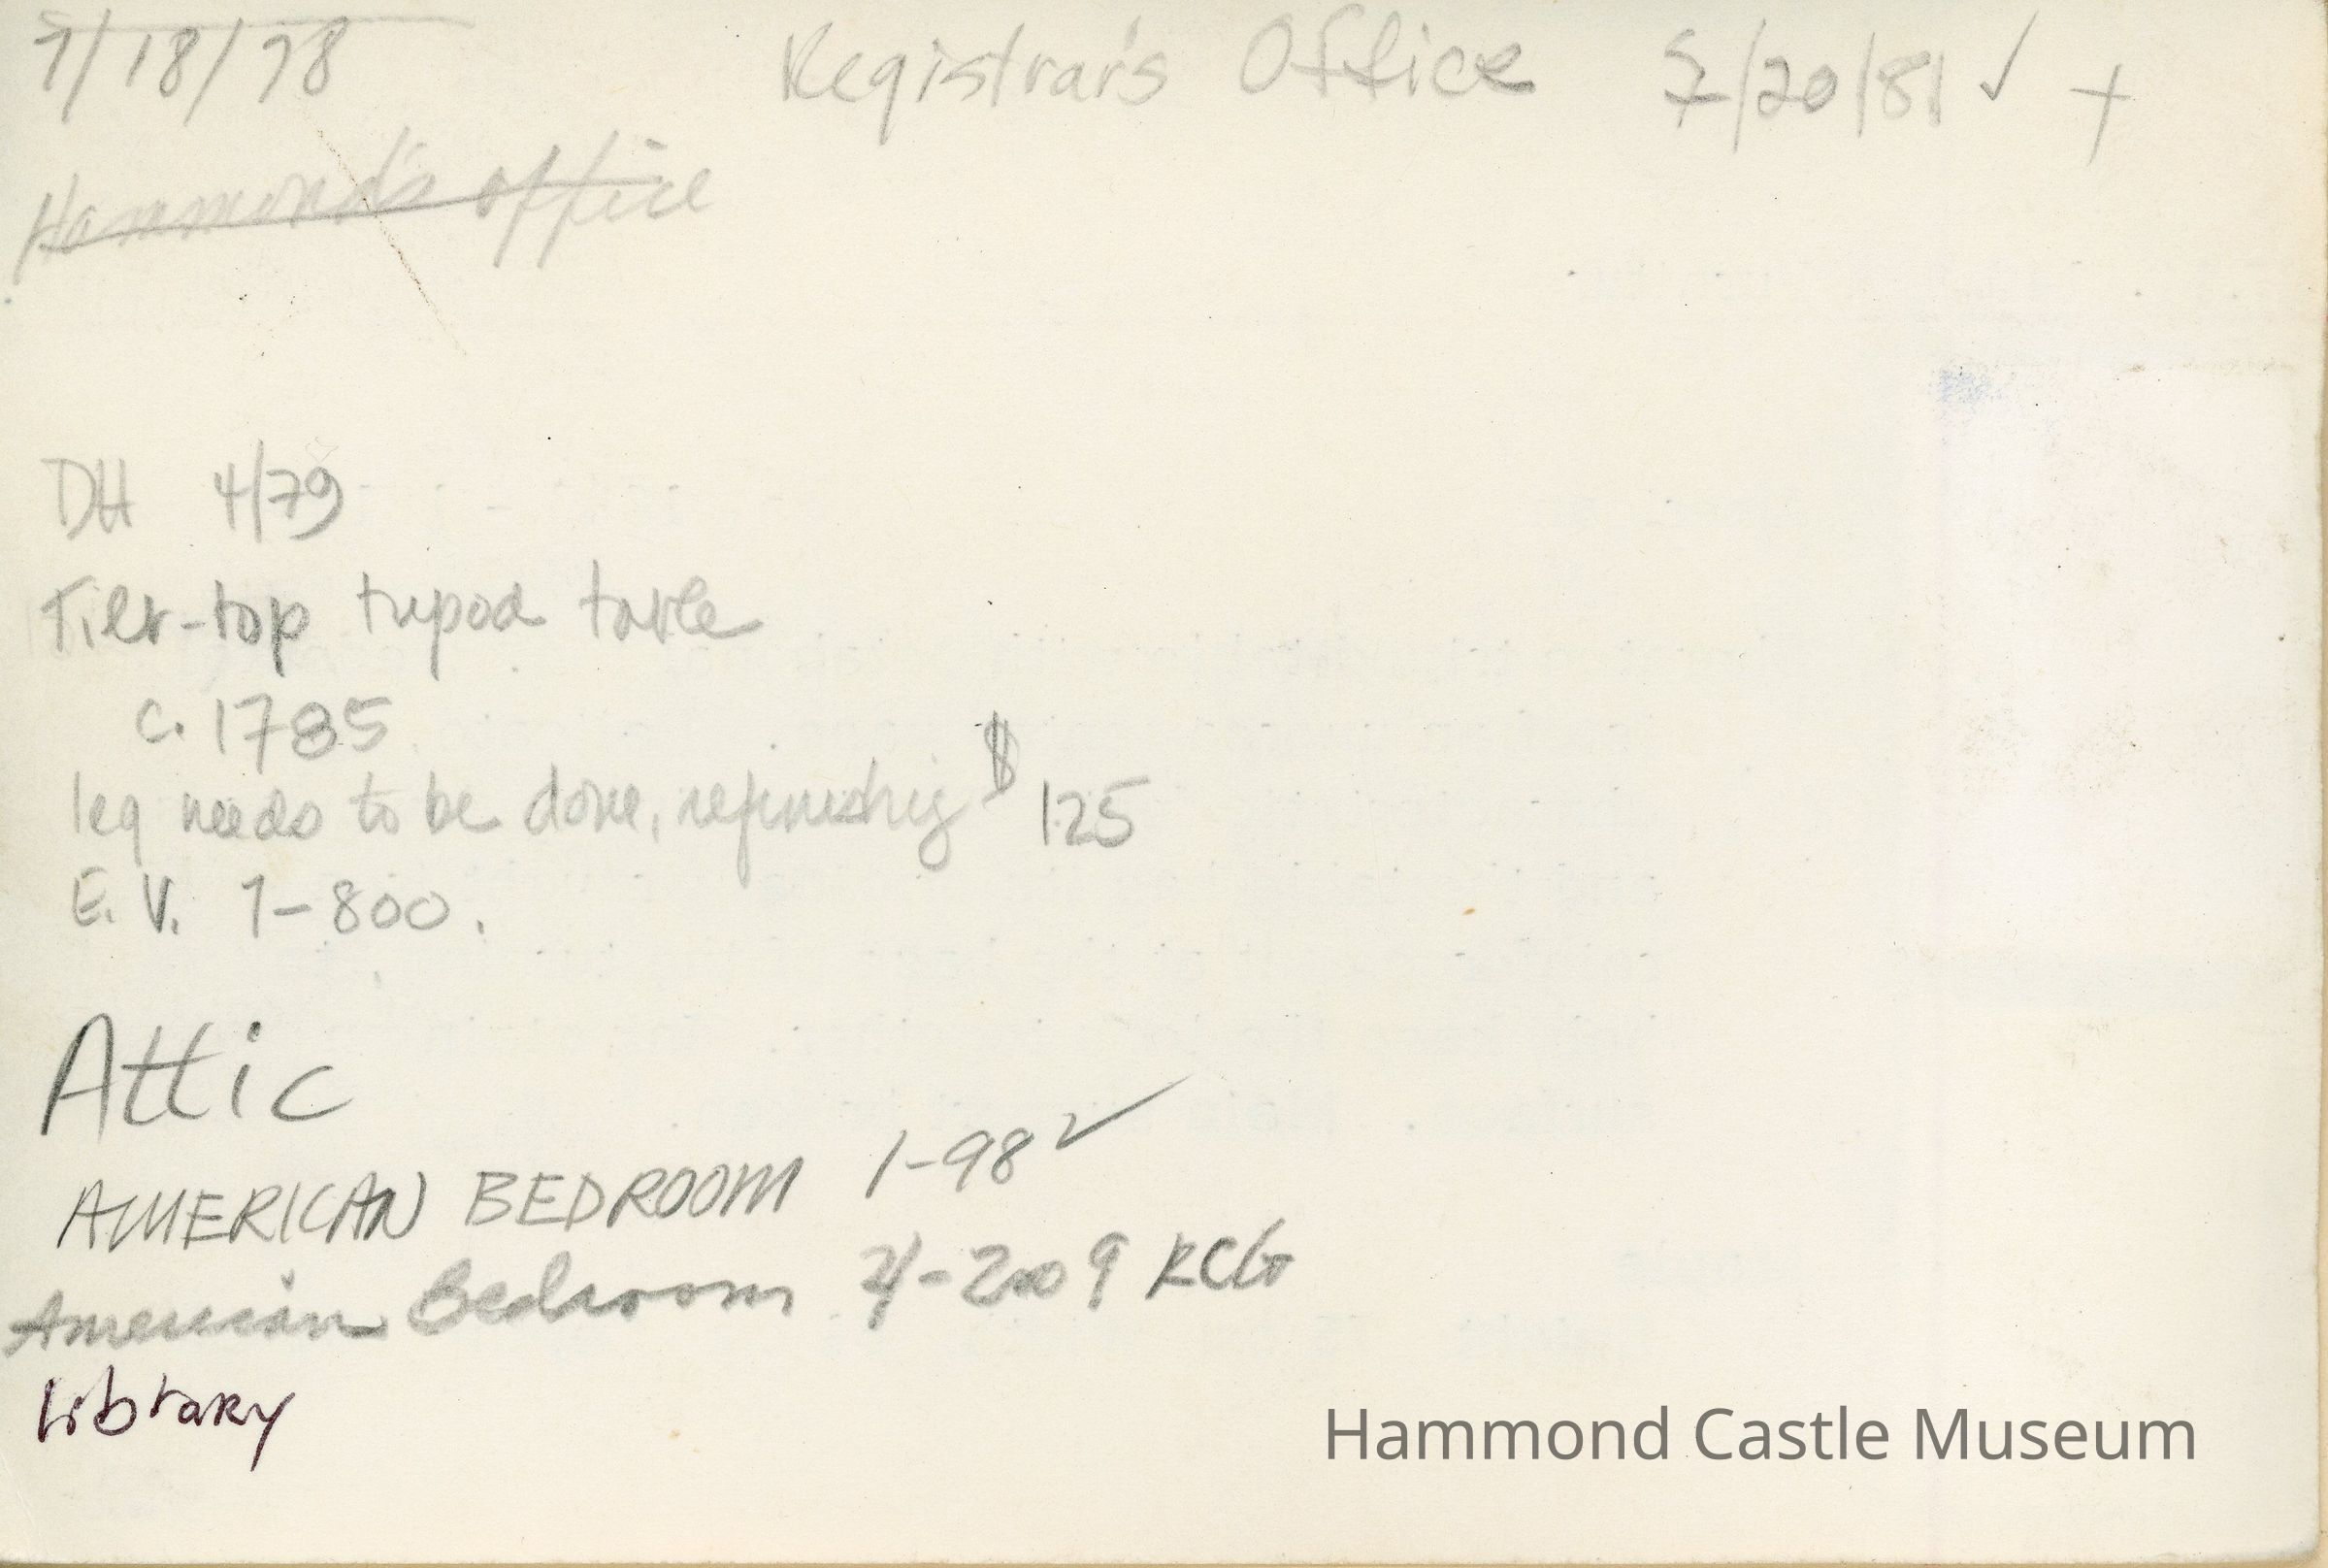 7/18/78 Registrar's Office 5/20/81 ✓ +
Hammond's office
DH 4/79
Tilt-top tripod table
c. 1785
leg needs to be done, refinishing $125
E.V. 7-800.
Attic
AMERICAN BEDROOM 1-98 ✓
American Bedroom 4-2009 KCG
Library
Hammond Castle Museum